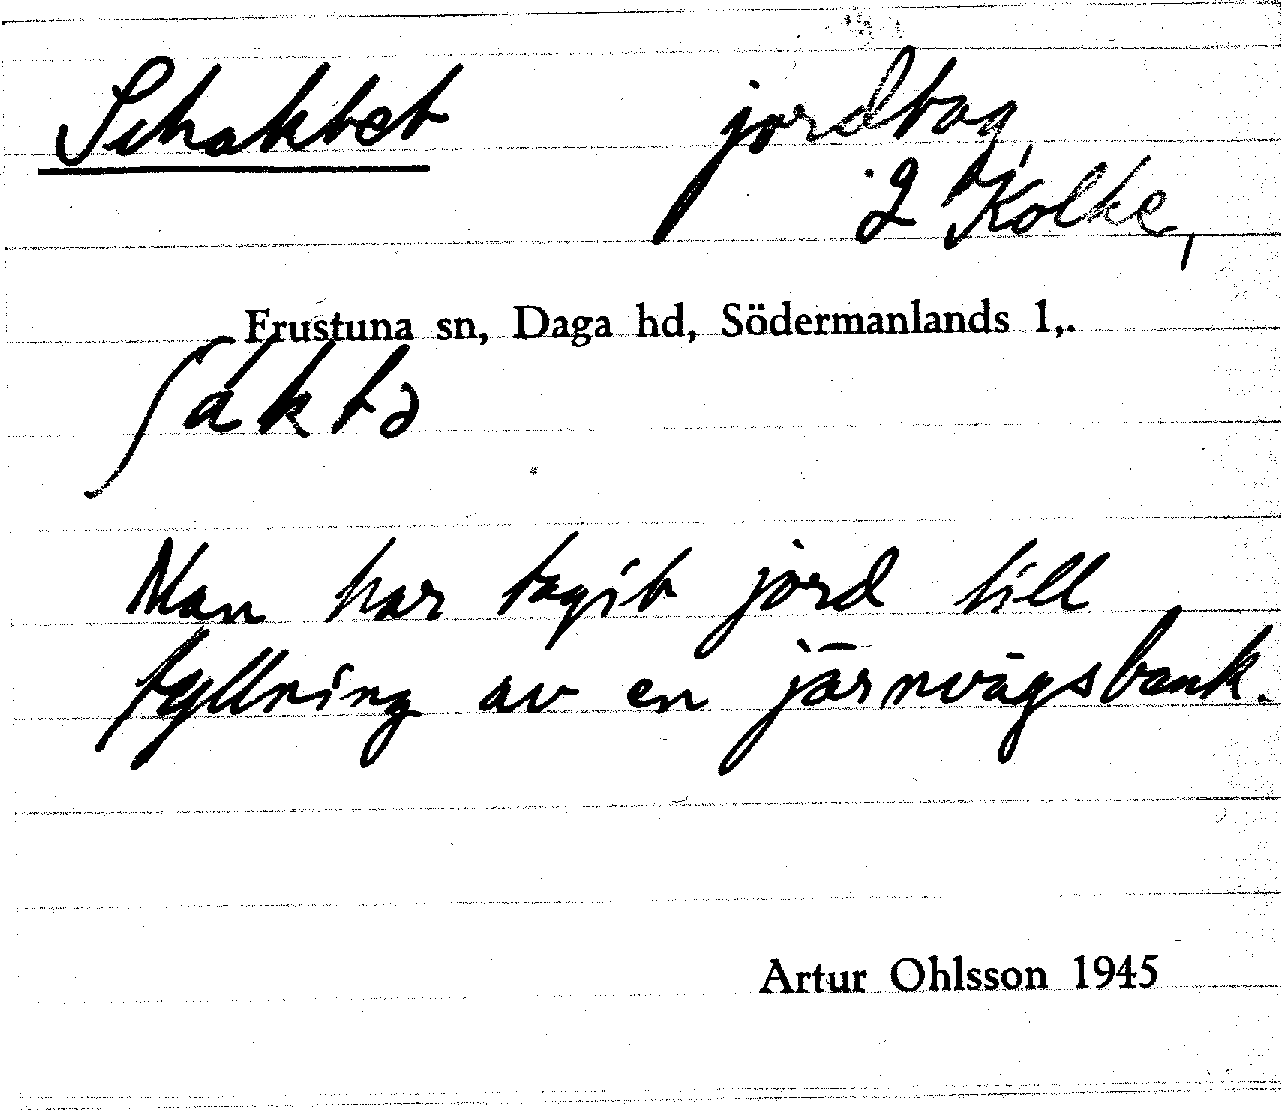 Schaktet jordtag,
2 Kolke,
Frustuna sn, Daga hd, Södermanlands l,.
ʃáktə
Man har tagit jord till
fyllning av en järnvägsbank.
Artur Ohlsson 1945